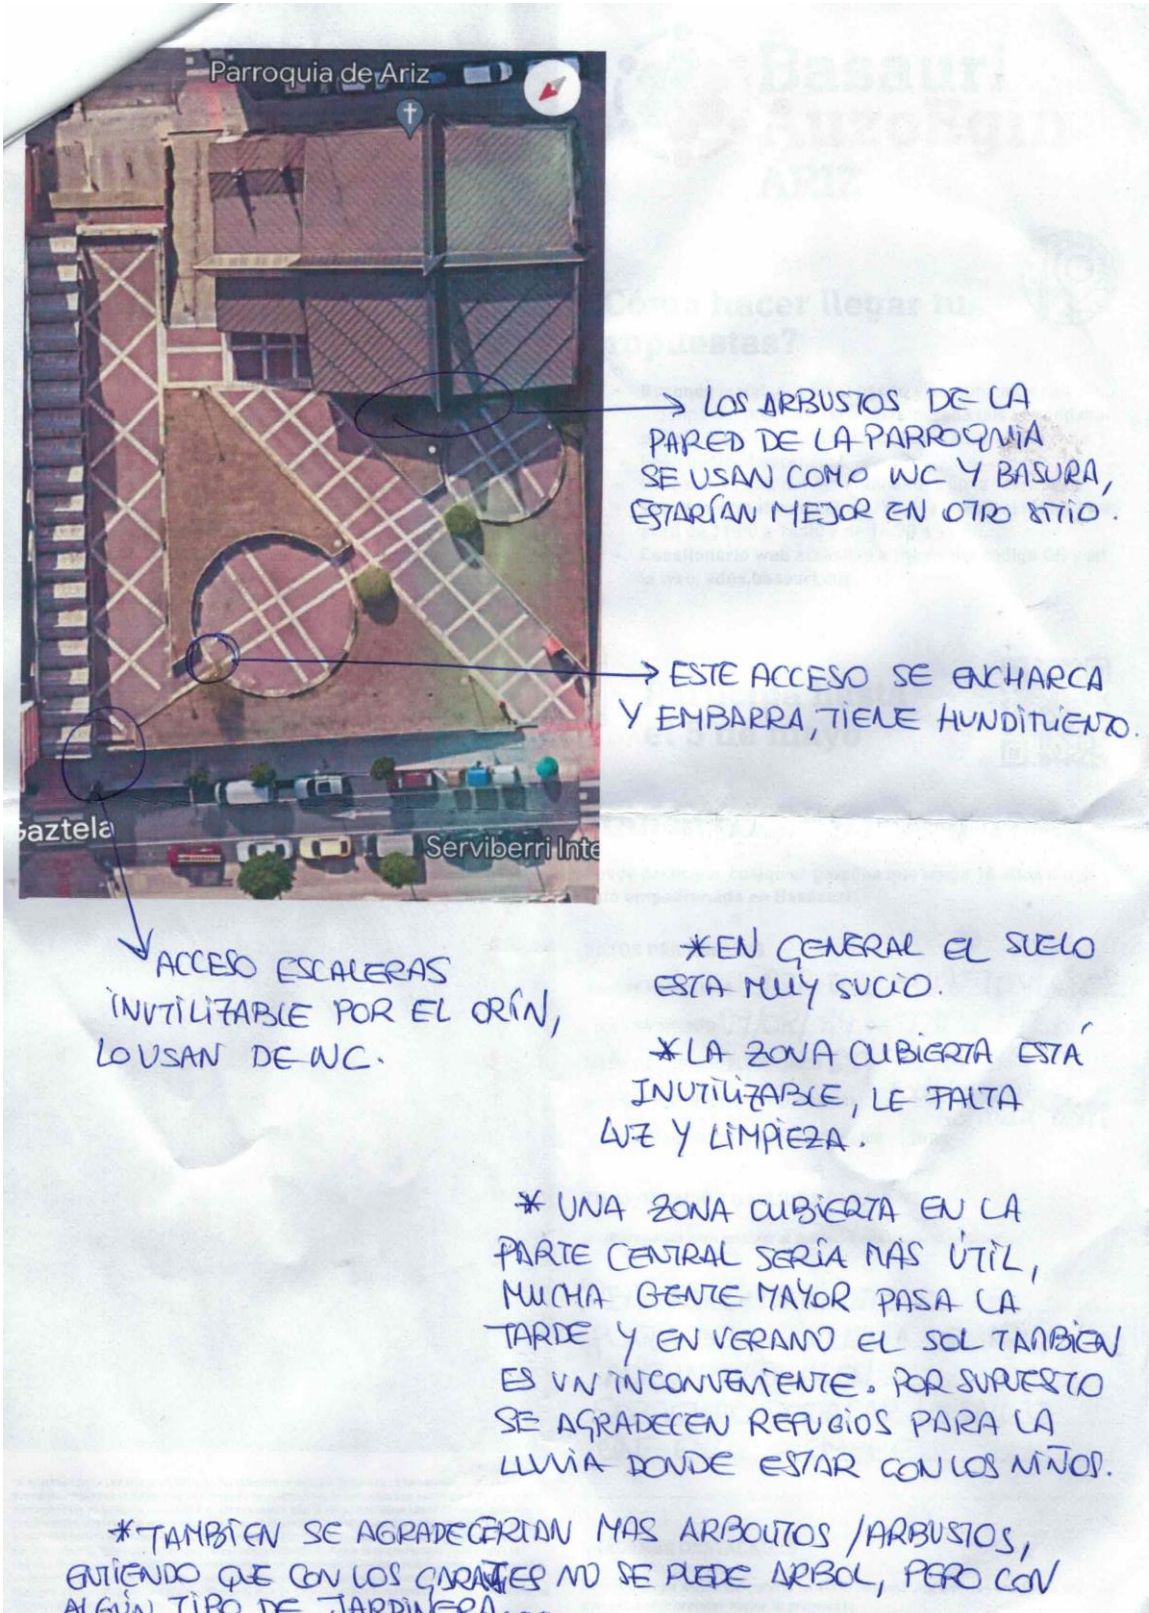 Parroquia de Ariz
→ LOS ARBUSTOS DE LA
PARED DE LA PARROQUIA
SE USAN COMO WC Y BASURA,
ESTARÍAN MEJOR EN OTRO SITIO.
→ ESTE ACCESO SE ENCHARCA
Y EMBARRA, TIENE HUNDIMIENTO.
Gaztela
Serviberri Inte
ACCESO ESCALERAS
INUTILIZABLE POR EL ORÍN,
LO USAN DE WC.
*EN GENERAL EL SUELO
ESTA MUY SUCIO.
*LA ZONA CUBIERTA ESTÁ
INUTILIZABLE, LE FALTA
LUZ Y LIMPIEZA.
* UNA ZONA CUBIERTA EN LA
PARTE CENTRAL SERÍA MÁS ÚTIL,
MUCHA GENTE MAYOR PASA LA
TARDE Y EN VERANO EL SOL TAMBIEN
ES UN INCONVENIENTE. POR SUPUESTO
SE AGRADECEN REFUGIOS PARA LA
LLUVIA DONDE ESTAR CON LOS NIÑOS.
*TAMBIEN SE AGRADECERIAN MAS ARBOLITOS /ARBUSTOS,
ENTIENDO QUE CON LOS GARAJES NO SE PUEDE ARBOL, PERO CON
ALGÚN TIPO DE JARDINERA...
Basauri
AuzoEgin
ARIZ
¿Cómo hacer llegar tus
propuestas?